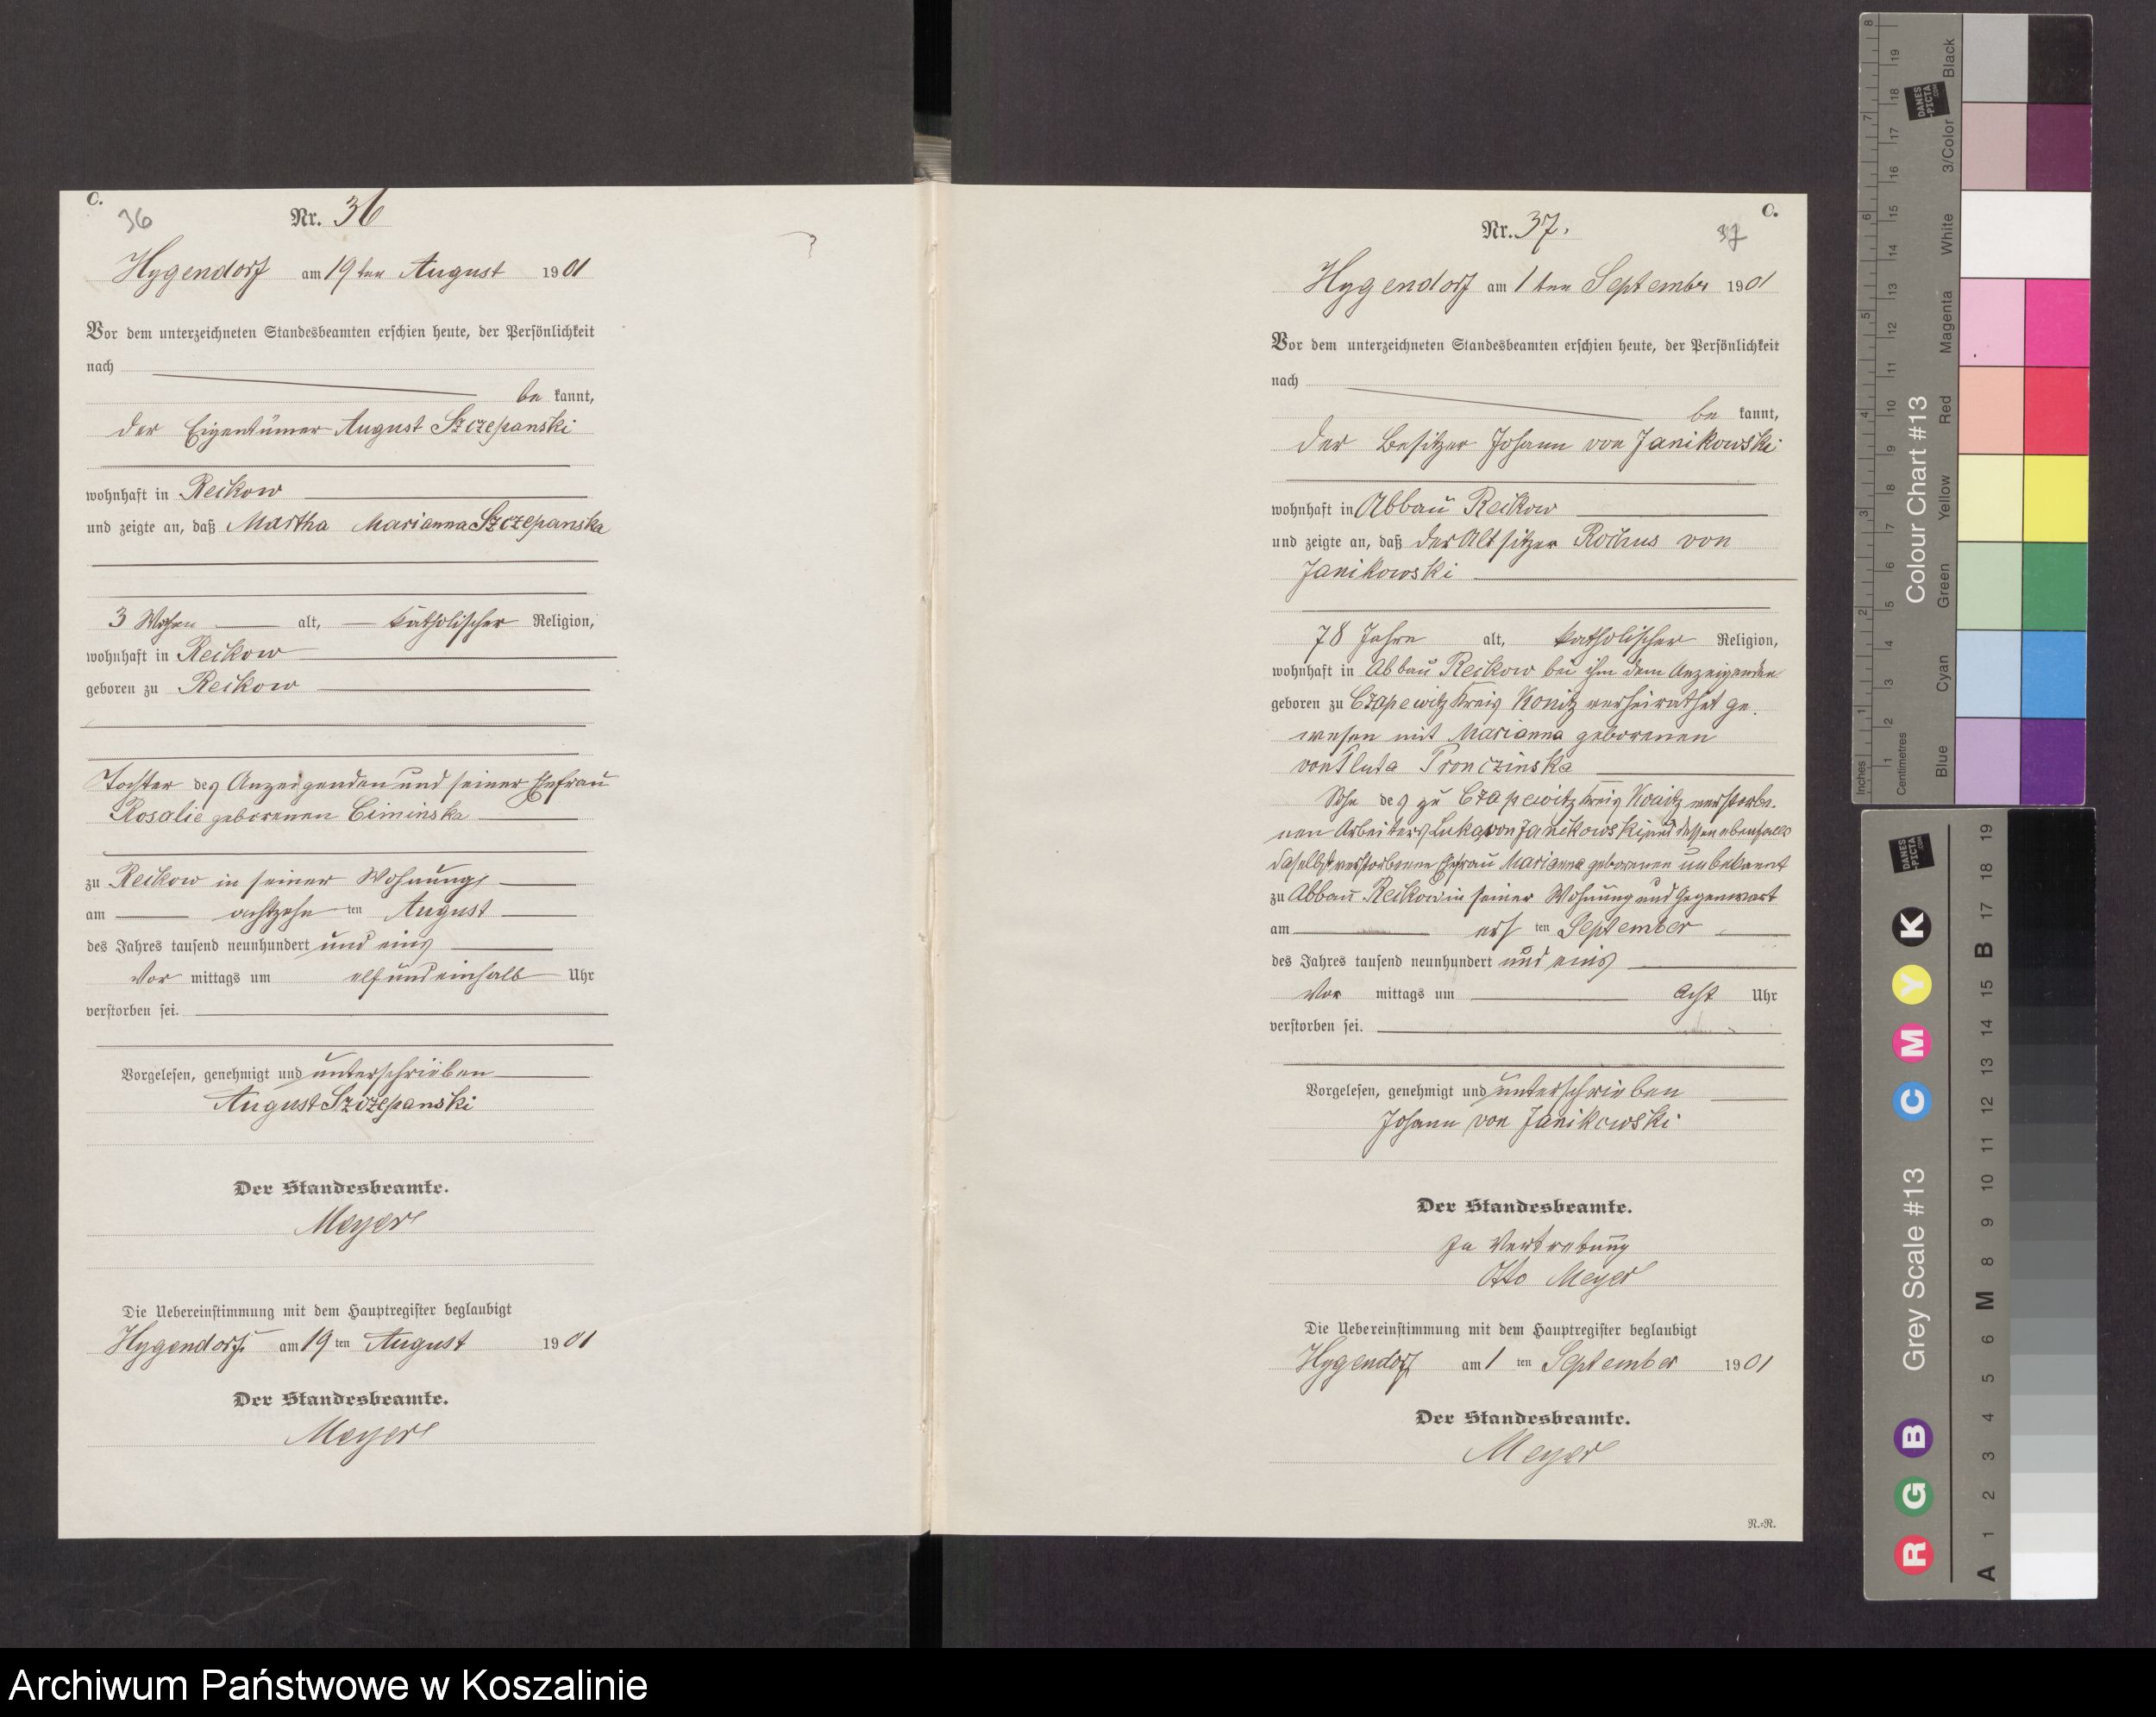 C.
36
Nr. 36
Hygendorf am 19 ten August 1901
Vor dem unterzeichneten Standesbeamten erschien heute, der Persönlichkeit
nach
be kannt,
der Eigentümer August Szczepanski
wohnhaft in Reikow
und zeigte an, daß Martha Marianna Szczepanska
3 Wochen alt, katholischer Religion,
wohnhaft in Reikow
geboren zu Reikow
Tochter des Anzeigenden und seiner Ehefrau
Rosalie geborenen Ciminska
zu Reikow in seiner Wohnung
am achtzehn ten August
des Jahres tausend neunhundert und eins
Vor mittags um elf und einhalb Uhr
verstorben sei.
Vorgelesen, genehmigt und unterschrieben
August Szczepanski
Der Standesbeamte.
Meyer
Die Uebereinstimmung mit dem Hauptregister beglaubigt
Hygendorf am 19 ten August 1901
Der Standesbeamte.
Meyer
C.
Nr. 37.
37
Hygendorf am 1 ten September 1901
Vor dem unterzeichneten Standesbeamten erschien heute, der Persönlichkeit
nach
be kannt,
der Besitzer Johann von Janikowski
wohnhaft in Abbau Reikow
und zeigte an, daß der Altsitzer Rochus von
Janikowski
78 Jahre alt, katholischer Religion,
wohnhaft in Abbau Reikow bei ihm dem Anzeigenden
geboren zu Czapewitz Kreis Konitz verheirathet ge
wesen mit Marianna geborenen
von Pluta Pronczinska
Sohn des zu Czapewitz Kreis Konitz verstorbe.
nen Arbeiters Lukas von Janikowski und dessen ebenfalls
daselbst verstorbenen Ehefrau Marianna geborenen unbekannt
zu Abbau Reikow in seiner Wohnung und Gegenwart
am ers ten September
des Jahres tausend neunhundert und eins
Vor mittags um Acht Uhr
verstorben sei.
Vorgelesen, genehmigt und unterschrieben
Johann von Janikowski
Der Standesbeamte.
In Vertretung
Otto Meyer
Die Uebereinstimmung mit dem Hauptregister beglaubigt
Hygendorf am 1 ten September 1901
Der Standesbeamte.
Meyer
R.=R.
Inches 1 2 3 4 5 6 7 8
Centimetres 1 2 3 4 5 6 7 8 9 10 11 12 13 14 15 16 17 18 19
Colour Chart #13
Blue Cyan Green Yellow Red Magenta White 3/Color Black
DANES
-PICTA
.COM
Grey Scale #13
R G B C M Y K
A 1 2 3 4 5 6 M 8 9 10 11 12 13 14 15 B 17 18 19
DANES
-PICTA
.COM
Archiwum Państwowe w Koszalinie